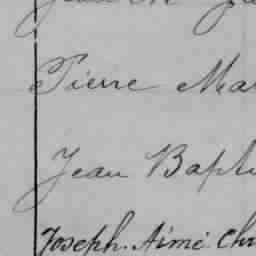 Pierre Ma
Jean Bapti
Joseph. Aimé. Chr